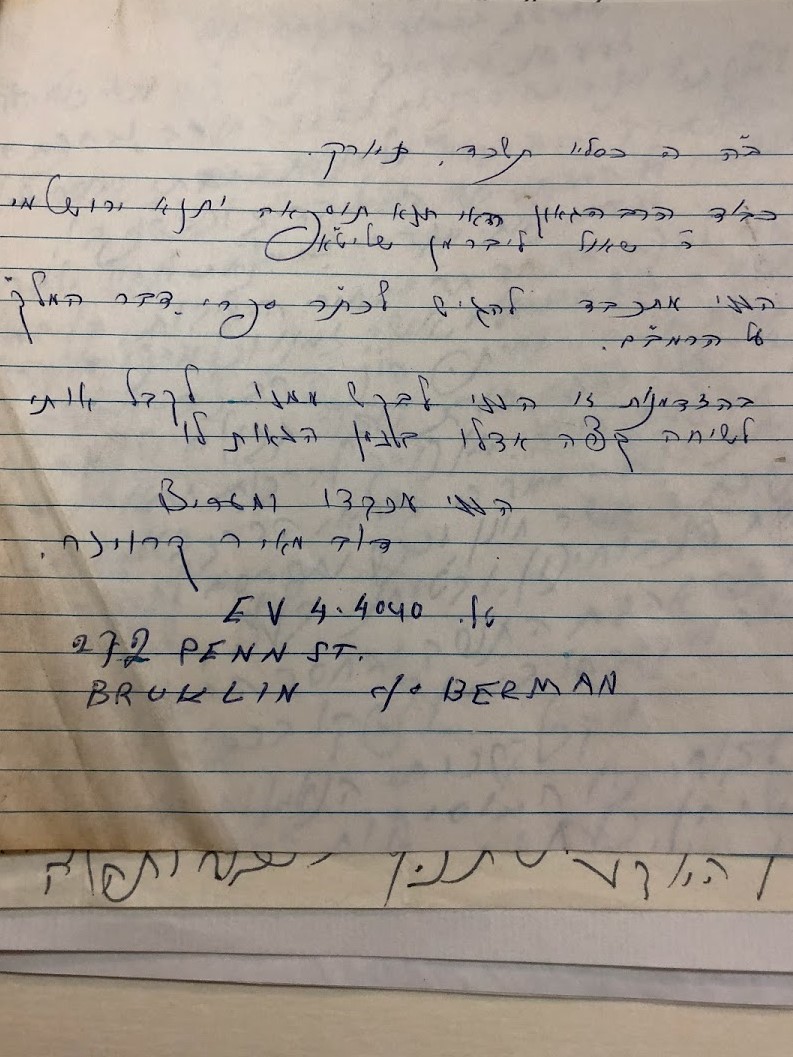 ב״ה ה כסליו תשכד, ניו יורק.
כבוד הרב הגאון תנא תוספאה ותנא ירושלמי
ר׳ שאול ליברמן שליט״א
הנני מתכבד להגיש לכת״ר ספרי דבר המלך״
על הרמב״ם.
בהזדמנות זו הנני לבקש ממנו לקבל אותי
לשיחה קצרה אצלו בזמן הנאות לו
הנני מוקירו ומעריצו
דוד מאיר קרויזר.
טל. EV 4.4040
272 PENN ST.
BRUKLIN c/o BERMAN